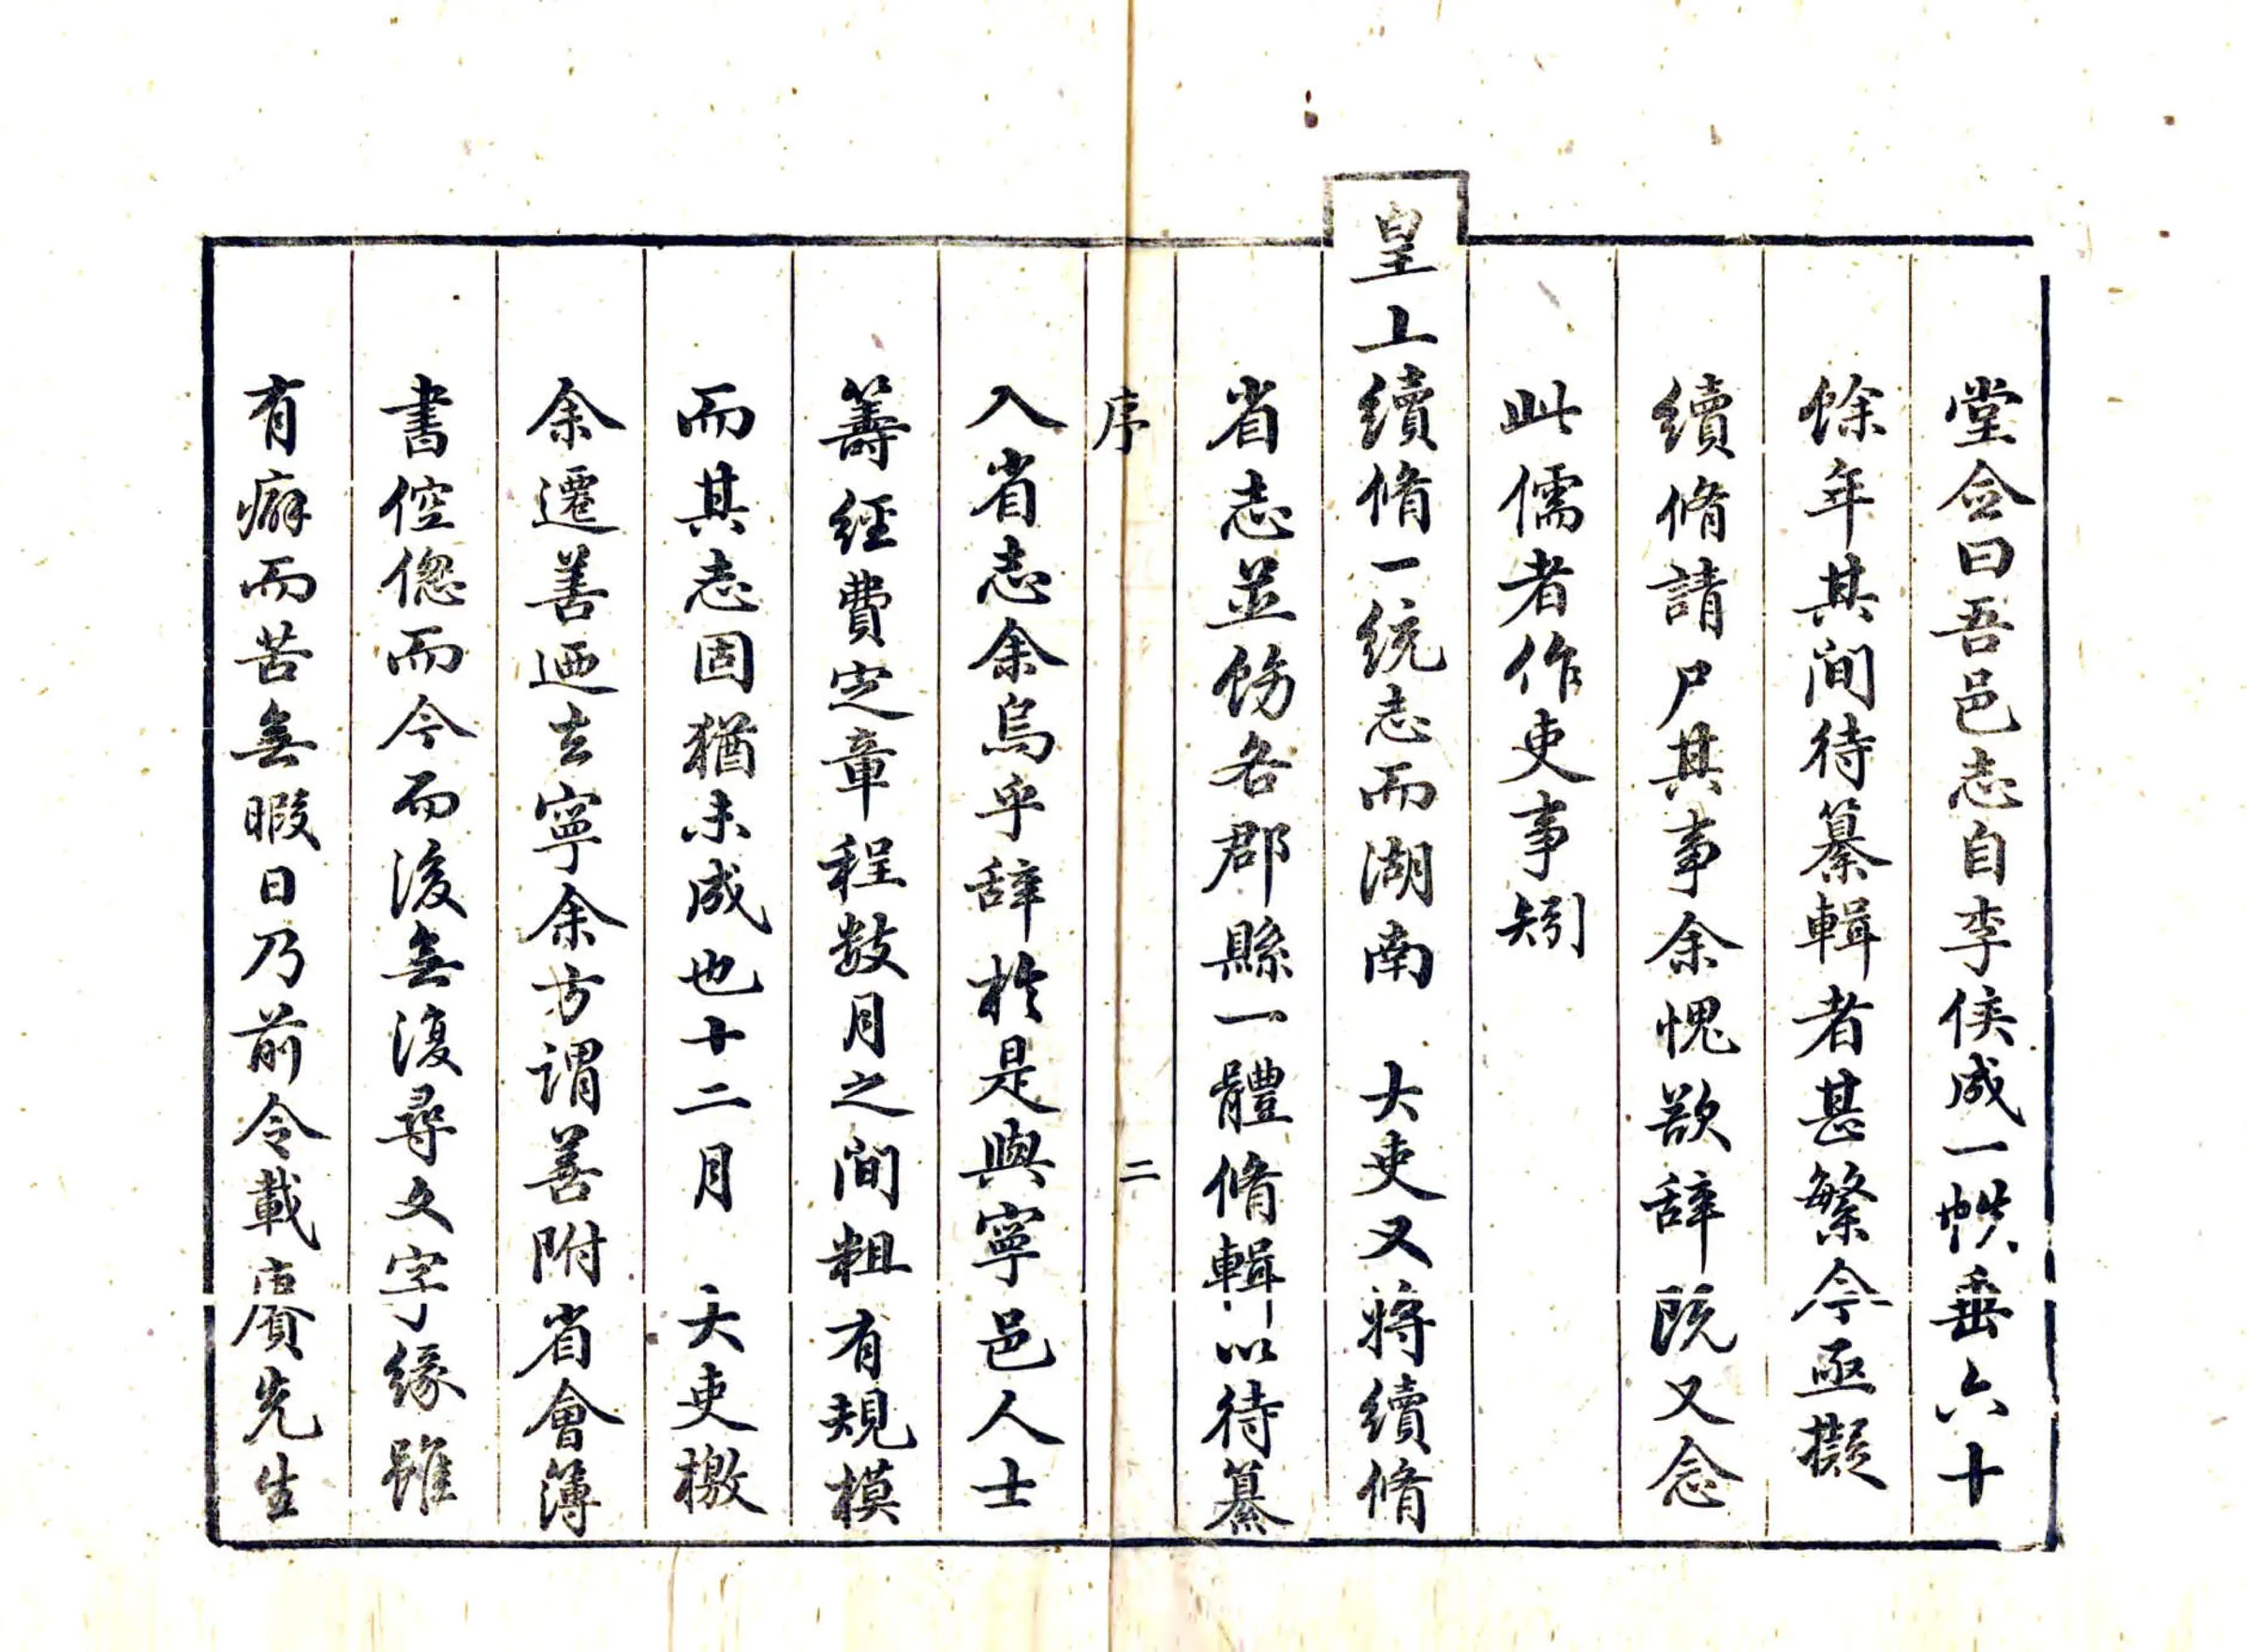 堂僉曰吾邑志自李侯成一帙垂六十
餘年其間待纂輯者甚繁今亟擬
續脩請尸其事余愧欲辞既又念
此儒者作吏事矧
皇上續脩一統志而湖南　大吏又將續脩
省志並飭各郡縣一體脩輯以待纂
序　二
入省志余烏乎辞於是與寧邑人士
籌經費定章程数月之間粗有規模
而其志固猶未成也十二月　大吏檄
余遷善迺去寧余方謂善附省會簿
書倥傯而今而後無復尋文字緣雖
有癖而苦無暇日乃前令載賡先生